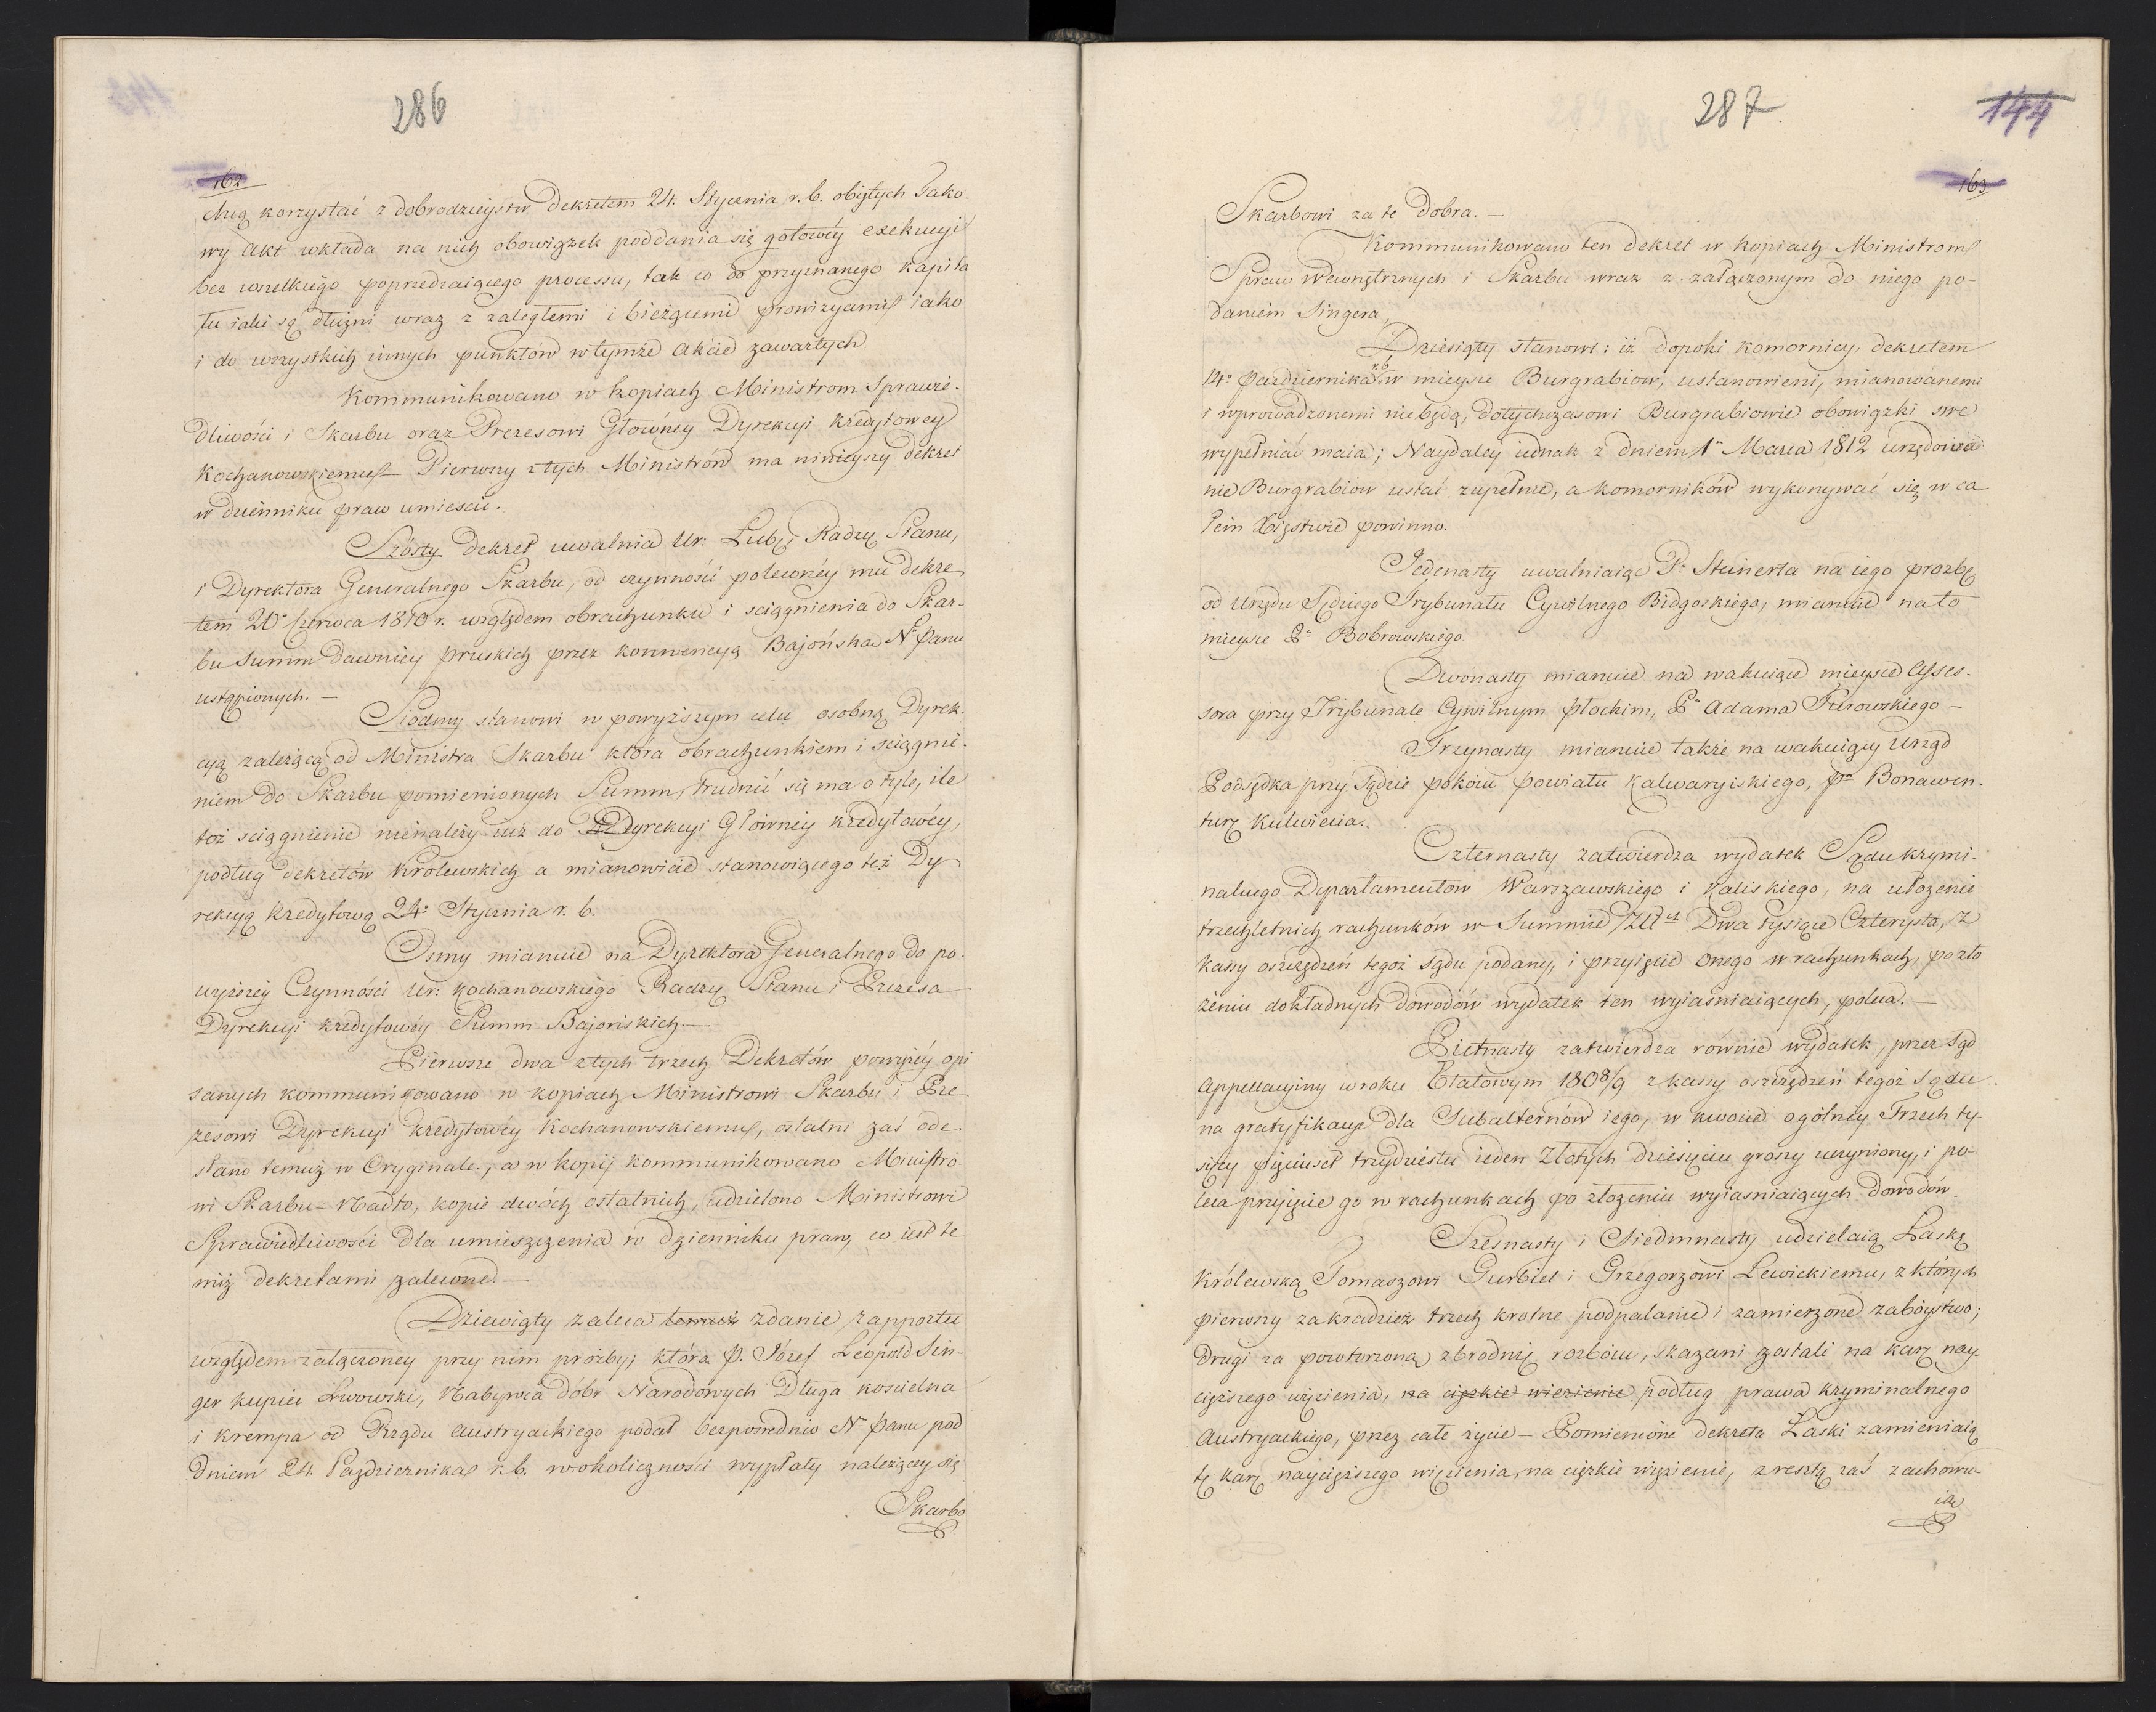 286
162
chcą korzystać z dobrodzieystw Dekretem 24. Stycznia r. b. obiętych Tako-
wy Akt wkłada na nich obowiązek poddania się gotowéy exekucyi
bez wszelkiego poprzedzaiącego processu, tak co do przyznanego kapita
łu iaki są dłużni wraz z zaległemi i bieżącemi prowizyami iako
i do wszystkich innych punktów w tymże Akcie zawartych.
Kommunikowano w kopiach Ministrom Sprawie-
dliwości i Skarbu oraz Prezesowi Głowney Dyrekcyi Kredytowey
Kochanowskiemu – Pierwszy z tych Ministrów ma ninieyszy dekret
w dzienniku praw umieścić.
Szósty Dekret uwalnia Ur: Lubę Radzę Stanu,
i Dyrektora Generalnego Skarbu, od czynności poleconéy mu dekre
tem 20o Czerwca 1810 r. względem obrachunku i sciągnienia do Skar-
bu Summ dawniey Pruskich przez konwencyą Bajońska N. Panu
ustąpionych. –
Siodmy stanowi w powyższym celu osobną Dyrek-
cyą zależącą od Ministra Skarbu ktora obrachunkiem i sciągnie-
niem do Skarbu pomienionych Summ, trudnić się ma o tyle, ile
toż sciągnienie nienależy iuż do Dyrekcyi Głowney kredytowéy,
podług dekretów Królewskich a mianowicie stanowiącego też Dy
rekcyą kredytową 24o Stycznia r. b.
Osmy mianuie na Dyrektora Generalnego do po-
wyższéy Czynności Ur: Kochanowskiego Radzę Stanu i Prezesa
Dyrekcyi kredytowéy Summ Bajońskich –
Pierwsze dwa z tych trzech Dekretów powyżéy opi
sanych kommunikowano w kopiach Ministrowi Skarbu i Pre
zesowi Dyrekcyi kredytowéy Kochanowskiemu, ostatni zaś ode
słano temuż w Oryginale, a w kopij kommunikowano Ministro-
wi Skarbu – Nadto, kopie dwóch ostatnich, udzielono Ministrowi
Sprawiedliwości dla umieszczenia w dzienniku praw, co iest te
miż dekretami zalecone. –
Dziewiąty zaleca temuż zdanie rapportu
względem załączoney przy nim prozby, którą P. Józef Leopold Sin-
ger kupiec Lwowski, Nabywca dóbr Narodowych Długa kościelna
i Krempa od Rządu Austryackiego podał bezpośrednio N. Panu pod
dniem 24. Października r. b. w okoliczności wypłaty należącey się
Skarbo
287
144
163
Skarbowi za te Dobra. –
Kommunikowano ten dekret w kopiach Ministrom
Spraw Wewnętrznych i Skarbu wraz z załączonym do niego po-
daniem Singera,
Dziesiąty stanowi: iż dopoki Komornicy, dekretem
14o Października r.b. w mieysce Burgrabiow, ustanowieni, mianowanemi
i wprowadzonemi niebędą, Dotychczasowi Burgrabiowie obowiązki swe
wypełniać maią; Naydaléy iednak z dniem 1o Marca 1812 urzędowa
nie Burgrabiow ustać zupełnie, a komorników wykonywać się w ca
łem Xięstwie powinno.
Jedenasty uwalniaiąc P. Steinerta na iego prozbę
od Urzędu Sędziego Trybunału Cywilnego Bidgoskiego, mianuie na to
mieysce P. Bobrowskiego
Dwónasty mianuie na wakuiące mieysce Asses-
sora przy Trybunale Cywilnym Płockim, P. Adama Turowskiego –
Trzynasty mianuie także na wakuiący Urząd
Podsędka przy Sądzie pokoiu Powiatu Kalwaryiskiego, P. Bonawen-
turę Kulwiecia.
Czternasty zatwierdza wydatek Sądu krymi-
nalnego Departamentow Warszawskiego i Kaliskiego, na ułożenie
trzechletnich rachunków w Summie Złt. Dwa tysiące Czterysta, z
kassy oszczędzeń tegoż Sądu podany, i przyięcie onego w rachunkach, po zło
żeniu dokładnych dowodów wydatek ten wyiaśniaiących, poleca. –
Pietnasty zatwierdza równie wydatek, przez Sąd
Appellacyiny w roku Etatowym 1808/9 z kassy oszczędzeń tegoż Sądu
na gratyfikacye dla Subalternów iego, w kwocie ogólney Trzech ty-
sięcy pięciuset trzydziestu ieden Złotych dziesięciu groszy uczyniony, i po-
leca przyięcie go w rachunkach po złożeniu wyiasniaiących dowodów.
Szesnasty i Siedmnasty udzielaią Łaskę
Królewską Tomaszowi Gurbiel i Grzegorzowi Lewickiemu, z których
pierwszy za kradzież trzech krotne podpalanie i zamierzone zabóystwo;
Drugi za powtorzoną zbrodnię rozboiu, skazani zostali na karę nay-
cięższego więzienia, na ciężkie więzienie podług prawa kryminalnego
Austryackiego, przez całe życie – Pomienione dekreta Łaski zamieniaią
tę karę naycięższego więzienia, na ciężkie więzienie, z resztą zaś zachowu-
ią